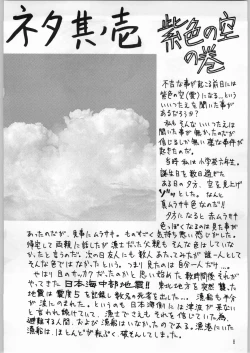 ネタ其ノ壱
紫色の空
の巻
不吉な事が起こる前日には
紫色の空(雲)になる…という
いいつたえを聞いた事が
あるだろうか?
私もそんないいつたえは
聞いた事が無かったのだが
信じるしか無い様な事件が
起きたのだ。
当時 私は小学校六年生。
誕生日を数日過ぎた
ある日の夕方、空を見上げ
ゾッとした。なんと
真ムラサキ色なのだ!!
夕方になると赤ムラサキ
色っぽくなるのは見た事が
あったのだが、見事にムラサキ。ものすごく気持ち悪い感じがした。
帰宅して両親に話したが漁士だった父親もそんな色はしていな
かったと言うのだ。次の日友人にも数人あたってみたが誰一人として
そんな色ではなかったという。つまり見たのは自分一人だけ…。
やはり目のサッカクだったのかと思い始めた数時間後それが
やってきた。日本海中部地震!! 東北地方を突然襲った
地震は震度5を記録し数名の死者を出した…。漁船も半分
が流されてしまった。というのも日本海側には津波が来ない
と言われ続けていて、漁士でさえもそれを信じていた為、
避難する人間、および漁船はいなかったのである。港湾にいた
漁船は、ほとんどが転ぷく、破そんしてしまった。